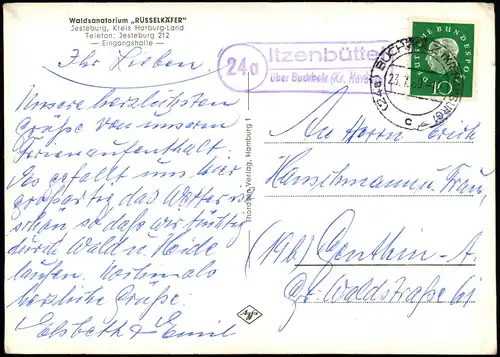 Waldsanatorium „RÜSSELKÄFER"
Jesteburg, Kreis Harburg-Land
Telefon: Jesteburg 212
— Eingangshalle —
Ihr Lieben.
Unsere herzlichsten
Grüße von unserem
Ferienaufenthalt.
Es gefällt uns hier
großartig das Wetter ist
schön so daß wir tüchtig
durch Wald u Heide
laufen. Nochmals
herzliche Grüße.
Elsbeth & Emil
Thordsen-Verlag, Hamburg 1
24a
Itzenbüttel
über Buchholz (Kr. Harb
(24a) BUCHHOLZ
23.
c
DEUTSCHE BUNDESPOST
10
An Herrn Erich
Hanschmann u. Frau,
(19b) Genthin-A.
Gr. Waldstraße 61